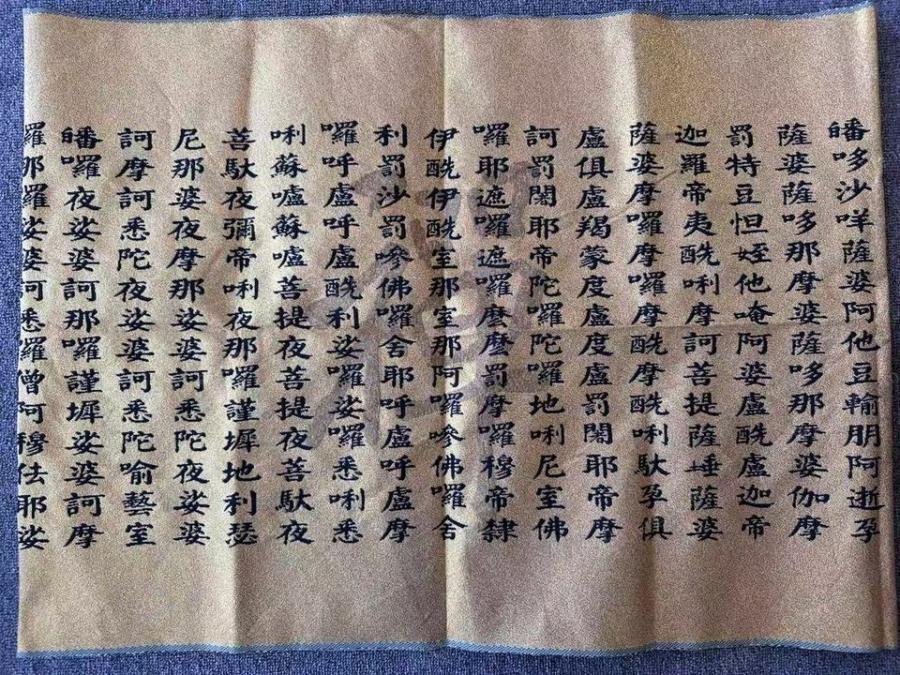 皤哆沙咩薩婆阿他豆輸朋阿逝孕
薩婆薩哆那摩婆薩哆那摩婆伽摩
罰特豆怛姪他唵阿婆盧醯盧迦帝
迦羅帝夷醯唎摩訶菩提薩埵薩婆
薩婆摩囉摩囉摩醯摩醯唎馱孕俱
盧俱盧羯蒙度盧度盧罰闍耶帝摩
訶罰闍耶帝陀囉陀囉地唎尼室佛
囉耶遮囉遮囉麼麼罰摩囉穆帝隸
伊醯伊醯室那室那阿囉嘇佛囉舍
利罰沙罰嘇佛囉舍耶呼盧呼盧摩
囉呼盧呼盧醯利娑囉娑囉悉唎悉
唎蘇嚧蘇嚧菩提夜菩提夜菩馱夜
菩馱夜彌帝唎夜那囉謹墀地利瑟
尼那婆夜摩那娑婆訶悉陀夜娑婆
訶摩訶悉陀夜娑婆訶悉陀喻藝室
皤囉夜娑婆訶那囉謹墀娑婆訶摩
囉那囉娑婆訶悉囉僧阿穆佉耶娑